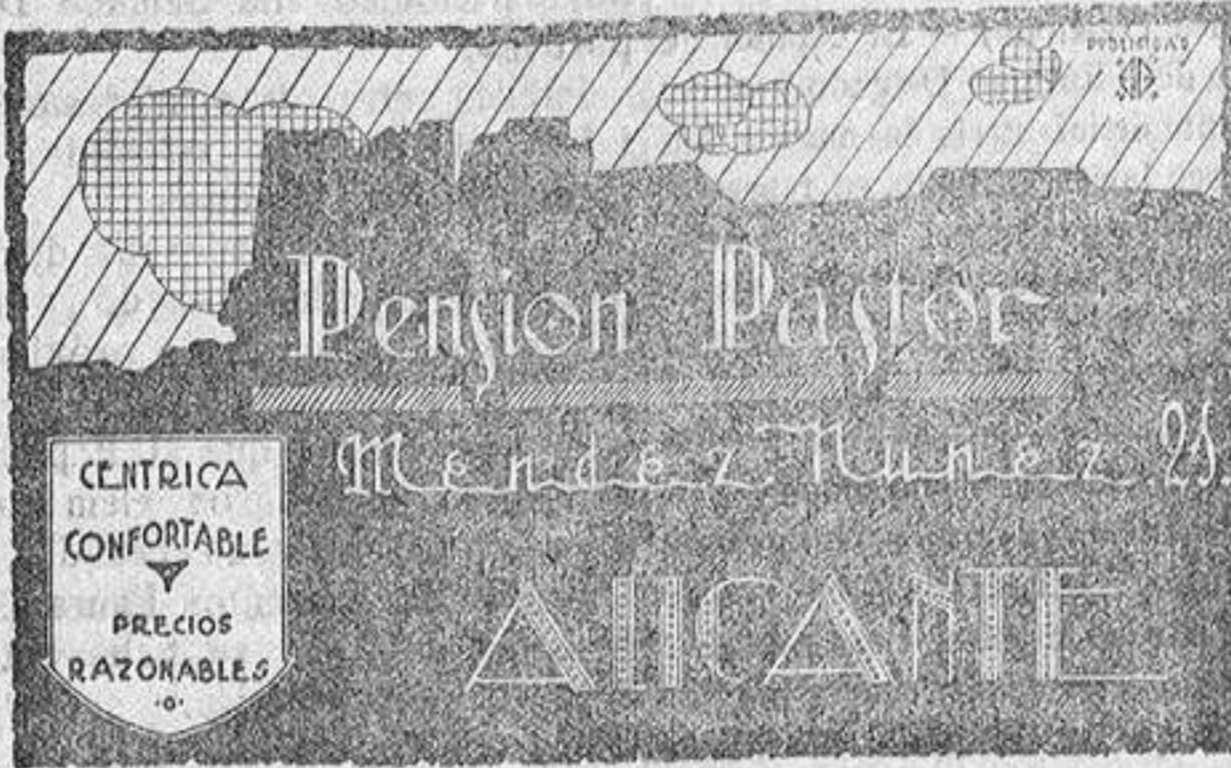 PUBLICIDAD
Pension Pastor
Mendez Nunez
ALICANTE
CENTRICA
CONFORTABLE
PRECIOS
RAZONABLES